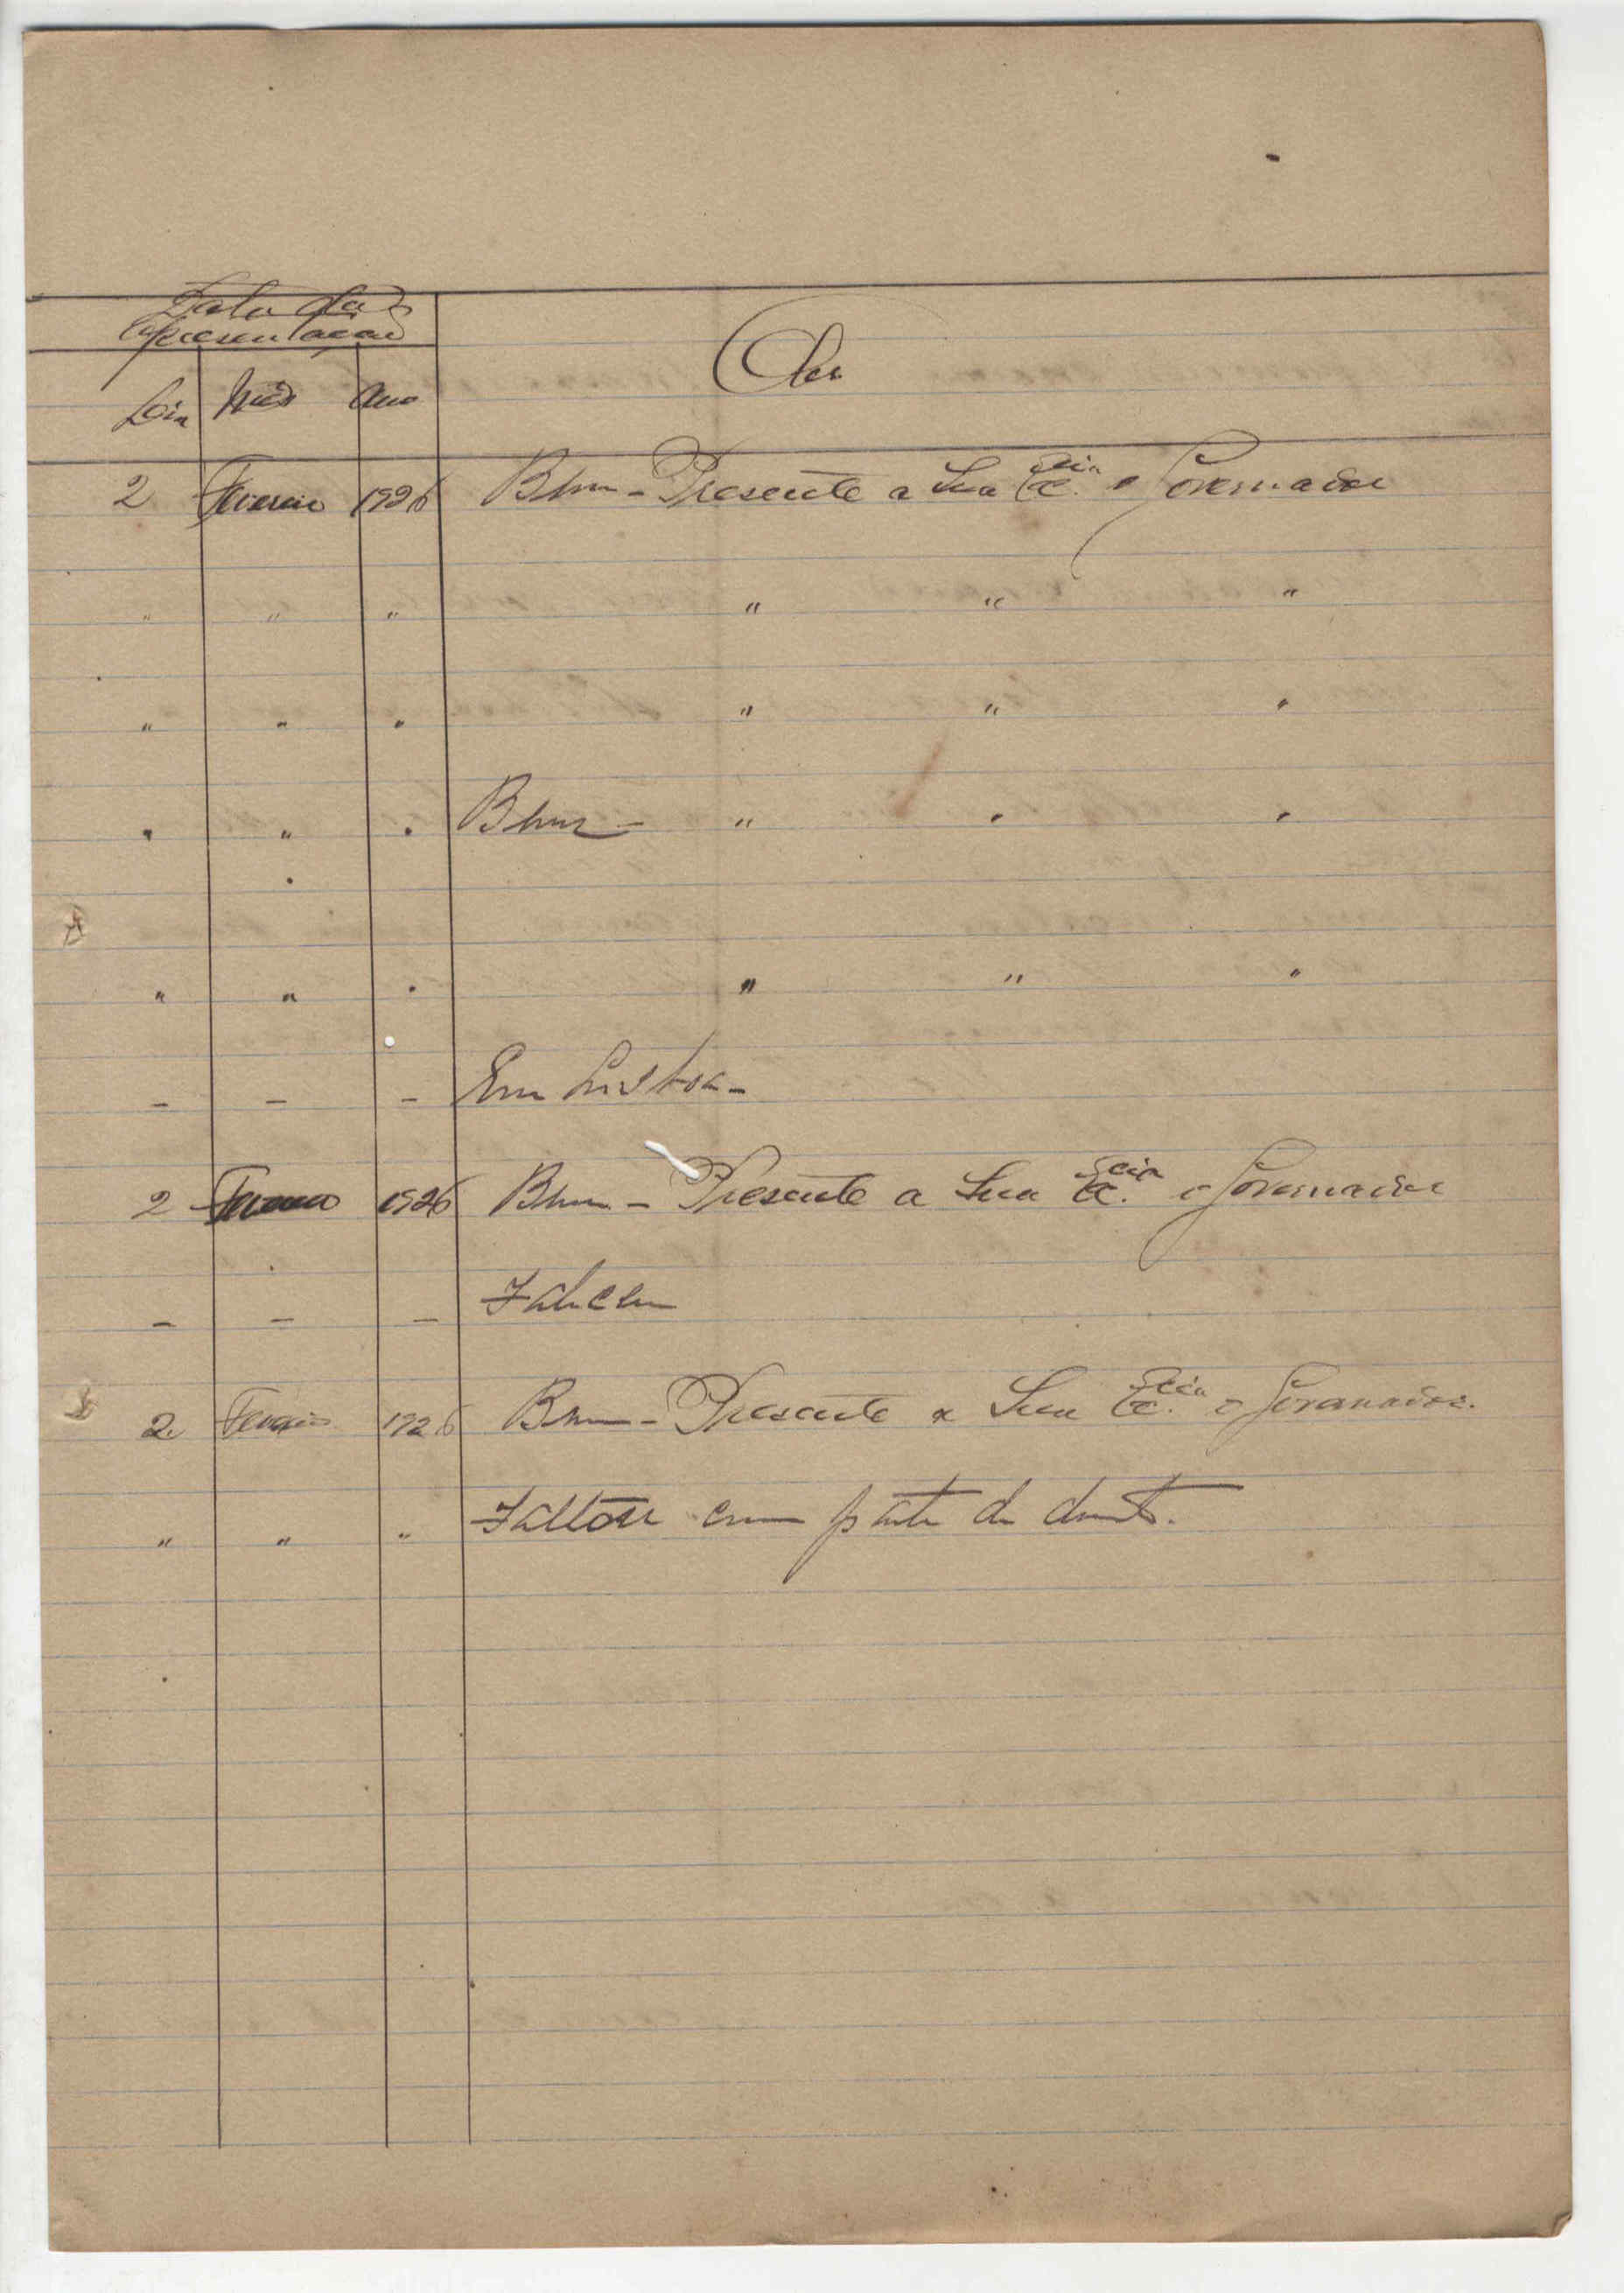 Data da
apresentação
Dia Mês Ano
Obs
2 Fevereiro 1926 Bem - Presente a Sua Ex.cia o Governador
" " " " " "
" " " " " "
" " " Bem - " " "
" " " " " "
- - - Em Lisboa -
2 Fevereiro 1926 Bem - Presente a Sua Ex.cia o Governador
- - -
2 Fevereiro 1926 Bem - Presente a Sua Ex.cia o Governador.
" " " Faltou com parte de doente.